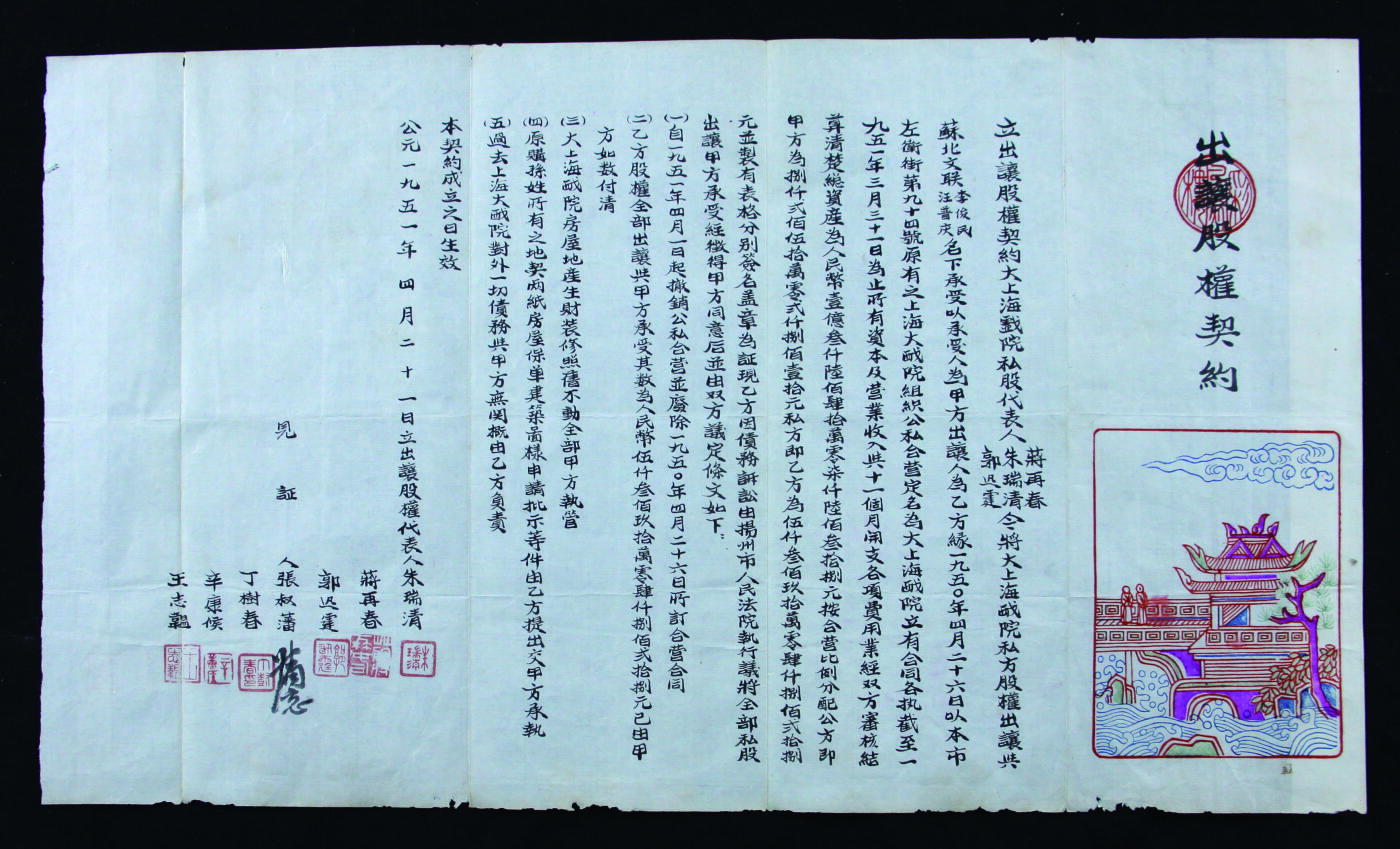 出讓股權契約
立出讓股權契約大上海戲院私股代表人
蔣再春
朱瑞清
郭迟霆
今將大上海戏院私方股權出讓与
蘇北文联
李俊民
汪普庆
名下承受以承受人為甲方出讓人為乙方緣一九五〇年四月二十六日以本市
左衛街第九十四號原有之上海大戏院組织公私合营定名為大上海戏院立有合同各执截至一
九五一年三月三十一日為止所有資本及营業收入共十一個月開支各項費用業經双方審核結
算清楚總資産為人民幣壹億叁仟陸佰肆拾萬零柒仟陸佰叁拾捌元按合营比例分配公方即
甲方為捌仟贰佰伍拾萬零贰仟捌佰壹拾元私方即乙方為伍仟叁佰玖拾萬零肆仟捌佰贰拾捌
元並製有表格分别簽名盖章為証現乙方因債務訴訟由揚州市人民法院執行議將全部私股
出讓甲方承受經徵得甲方同意后並由双方議定條文如下：
(一)自一九五一年四月一日起撤銷公私合营並廢除一九五〇年四月二十六日所訂合营合同
(二)乙方股權全部出讓与甲方承受其數為人民幣伍仟叁佰玖拾萬零肆仟捌佰贰拾捌元已由甲
方如數付清
(三)大上海戏院房屋地産生財装修照舊不動全部甲方執管
(四)原購孫姓所有之地契两紙房屋保单建築啚樣申請批示等件由乙方提出交甲方承執
(五)過去上海大戏院對外一切債務与甲方無関概由乙方負責
本契約成立之日生效
公元一九五一年四月二十一日立出讓股權代表人朱瑞清
蔣再春
郭迟霆
見証人張叔藩
丁樹春
辛康侯
王志龍